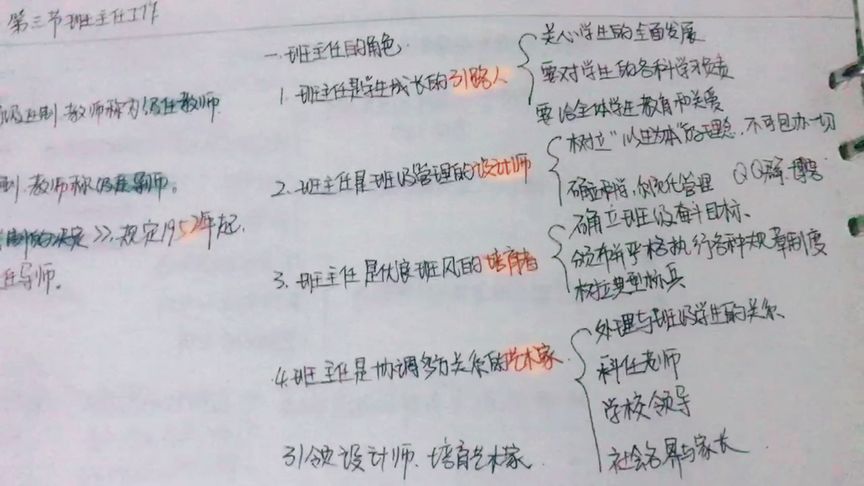 第三节班主任工作
级任制,教师称为级任教师.
制,教师称级任导师。
》,规定1952年起,
任导师。
一.班主任的角色
1.班主任是学生成长的引路人
关心学生的全面发展
要对学生的各科学习负责
要给全体学生教育和关爱
2.班主任是班级管理的设计师
树立"以生为本"的理念,不可包办一切
确立科学,民主化管理 QQ群.博客
3.班主任是优良班风的培育者
确立班级奋斗目标、
颁布并严格执行各种规章制度
树立典型标兵
4.班主任是协调多方关系的艺术家
处理与班级学生的关系
科任老师
学校领导
社会各界与家长
引领设计师.培育艺术家.